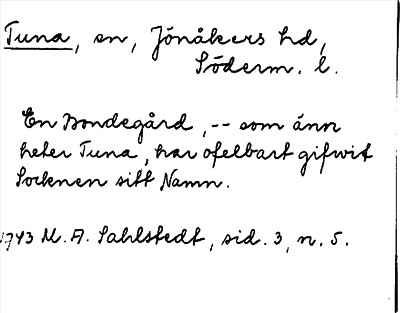 Tuna, sn, Jönåkers hd,
Söderm. l.
En Bondegård, -- som änn
heter Tuna, har ofelbart gifwit
Socknen sitt Namn.
1743 M. A. Sahlstedt, sid. 3, n. 5.